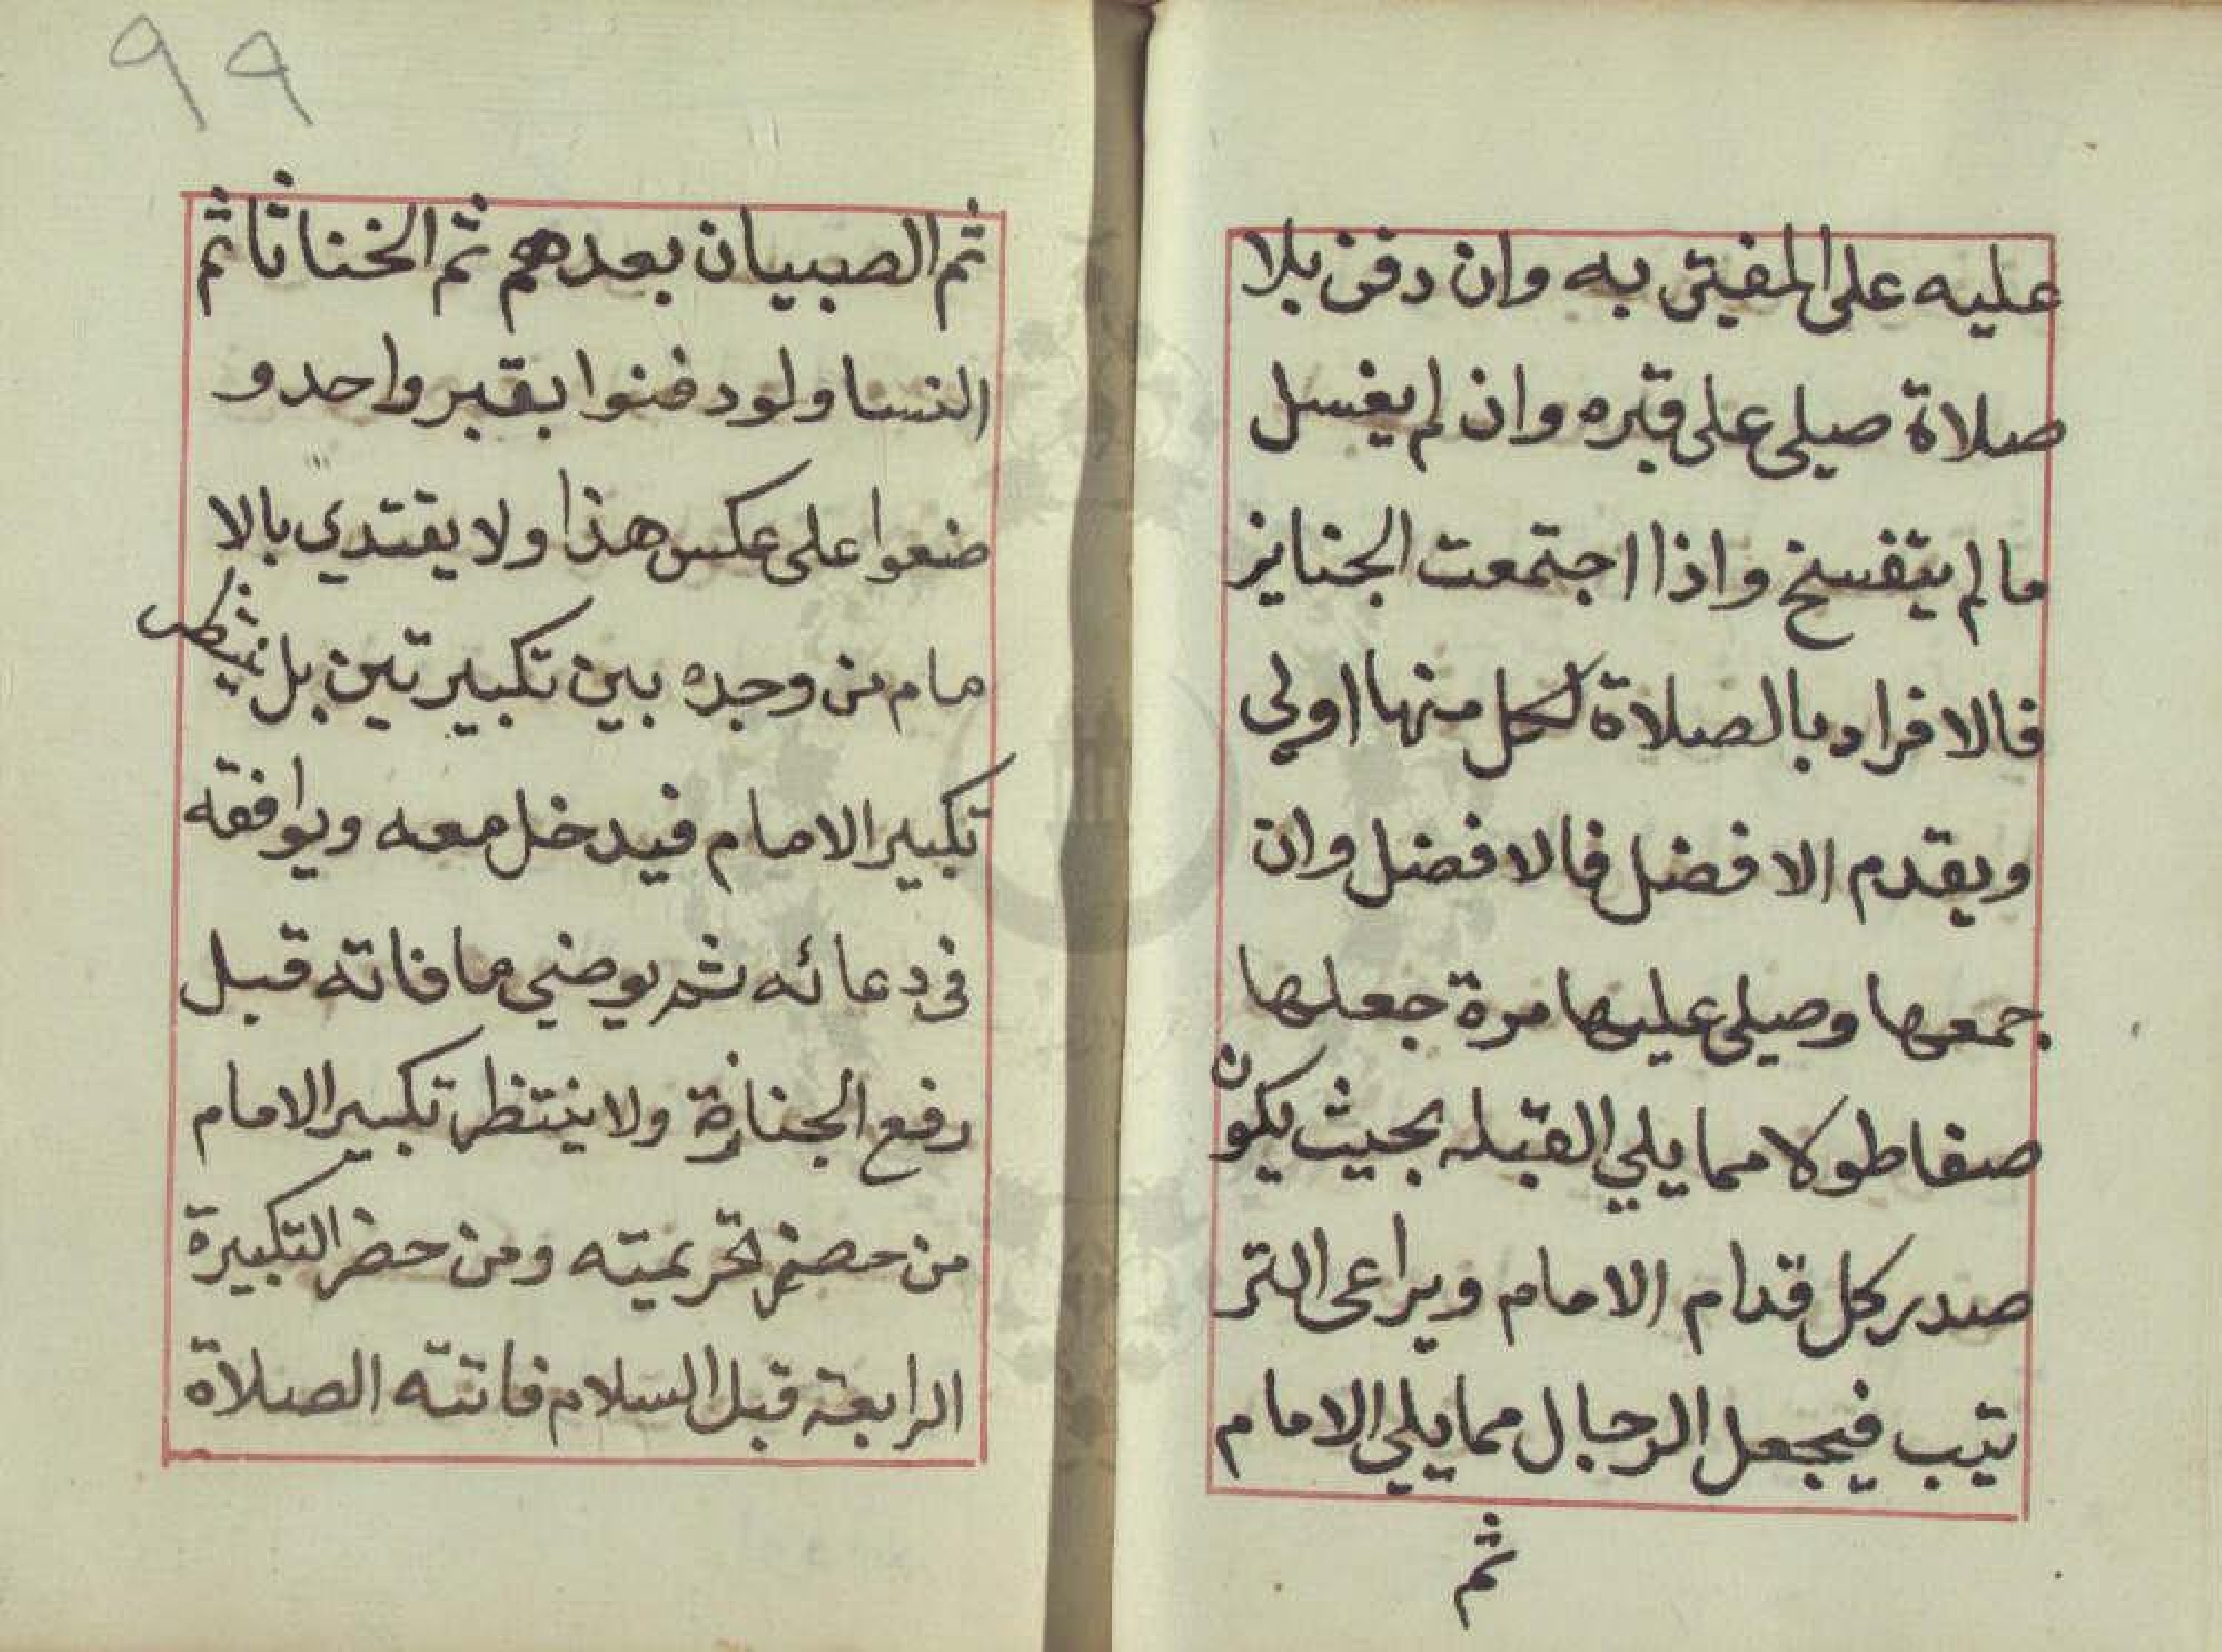 عليه على المفتى به وان دفن بلا
صلاة صلى على قبره وان لم يغسل
مالم يتفسخ واذا اجتمعت الجنايز
فالافراد بالصلاة لكل منها اولى
ويقدم الافضل فالافضل وان
جمعها وصلى عليها مرة جعلها
صفا طولا مما يلي القبله بحيث يكون
صدر كل قدام الامام ويراعى التر
تيب فيجعل الرجال مما يلي الامام
ثم
٩٩
ثم الصبيان بعدهم ثم الخناثا ثم
النسا ولو دفنوا بقبر واحد و
ضعوا على عكس هذا ولا يقتدي بالا
مام من وجده بين تكبيرتين بل ينتظر
تكبير الامام فيدخل معه ويوافقه
في دعائه ثم يوضي ما فاته قبل
رفع الجنازة ولا ينتظر تكبير الامام
من حضر تحريمته ومن حضر التكبيرة
الرابعة قبل السلام فاتته الصلاة